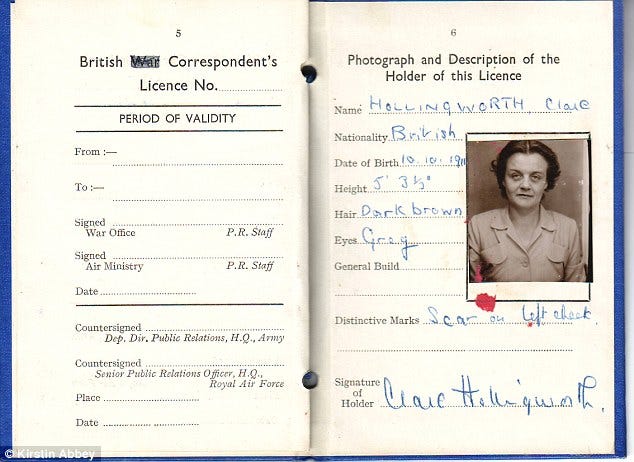 5
British War Correspondent's
Licence No.
PERIOD OF VALIDITY
From :—
To :—
Signed
War Office P.R. Staff
Signed
Air Ministry P.R. Staff
Date
Countersigned
Dep. Dir. Public Relations, H.Q., Army
Countersigned
Senior Public Relations Officer, H.Q.,
Royal Air Force
Place
Date
6
Photograph and Description of the
Holder of this Licence
Name HOLLINGWORTH, Clare
Nationality British
Date of Birth 10.10.1911
Height 5' 3½"
Hair Dark brown
Eyes Grey
General Build
Distinctive Marks Scar on left cheek.
Signature
of
Holder Clare Hollingworth.
© Kirstin Abbey